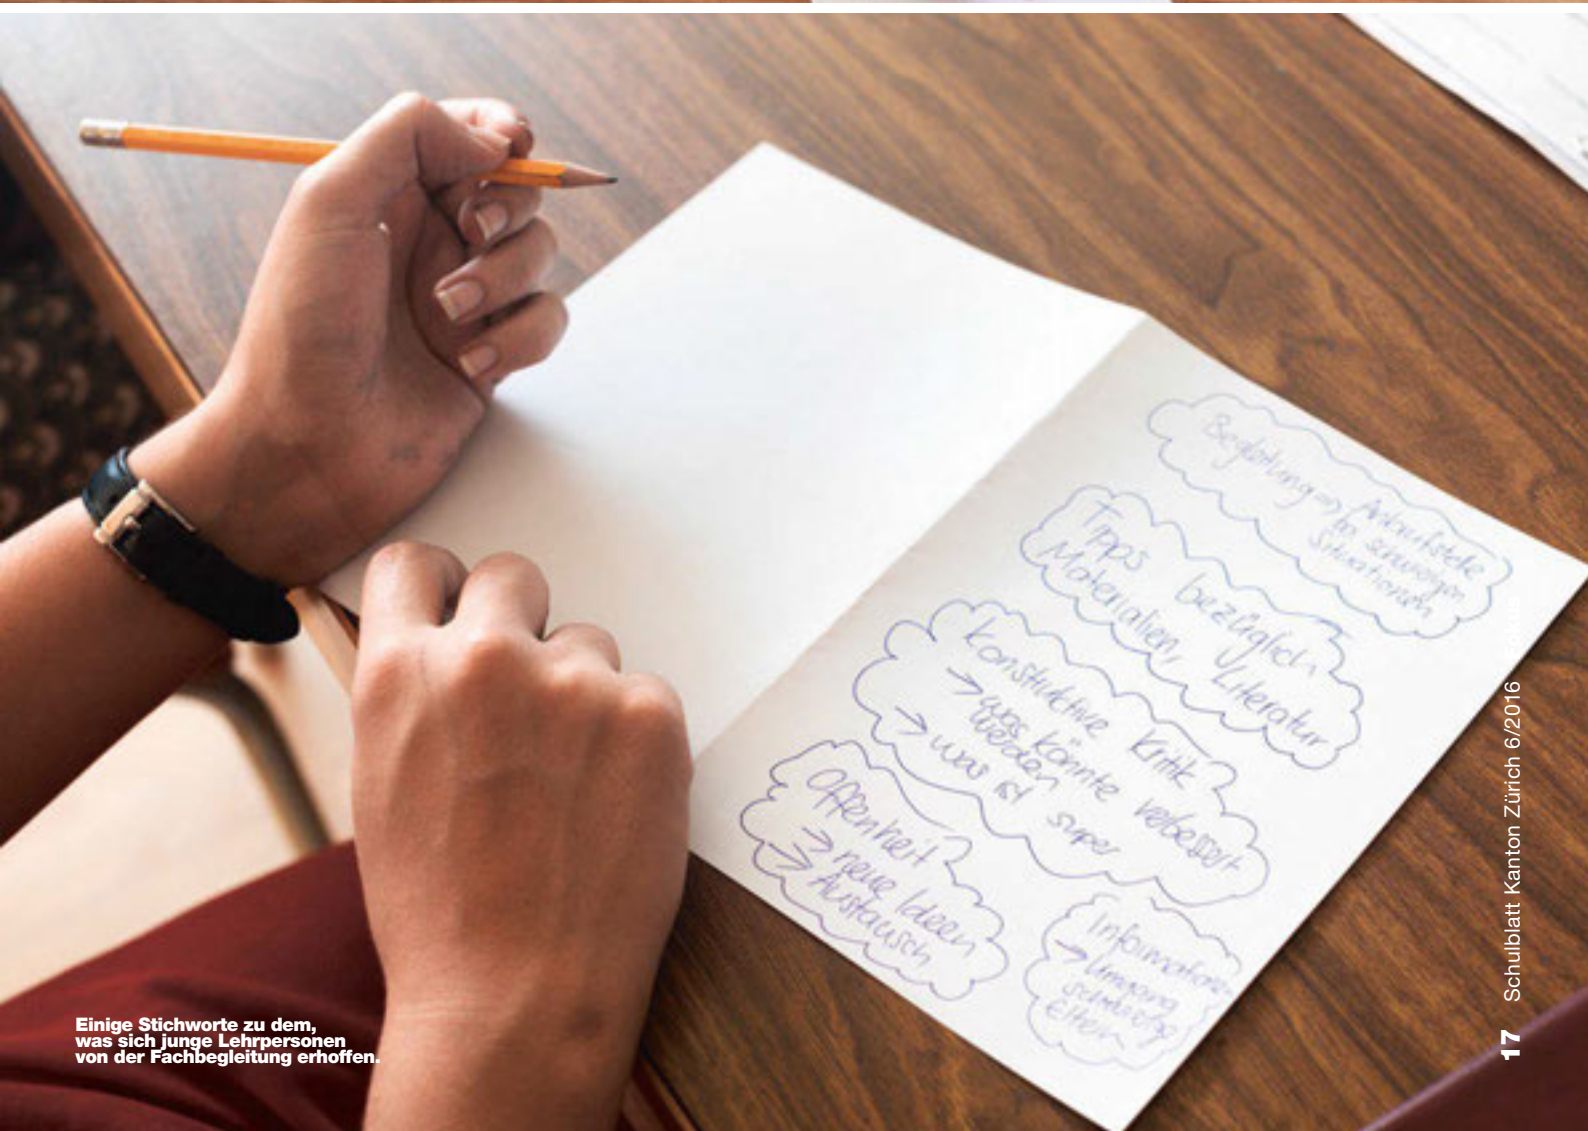 Begleitung => Anlaufstelle
in schwierigen
Situationen
Tipps bezüglich
Materialien, Literatur
Konstruktive Kritik
→ was könnte verbessert
werden
→ was ist super
Offenheit
→ neue Ideen
→ Austausch
Informationen
→ Umgang
Eltern
Einige Stichworte zu dem,
was sich junge Lehrpersonen
von der Fachbegleitung erhoffen.
17 Schulblatt Kanton Zürich 6/2016